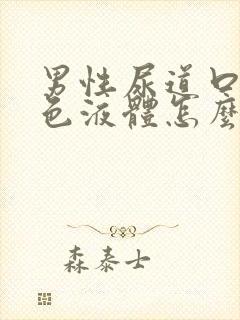 男性尿道口
色液體怎麼
森泰士